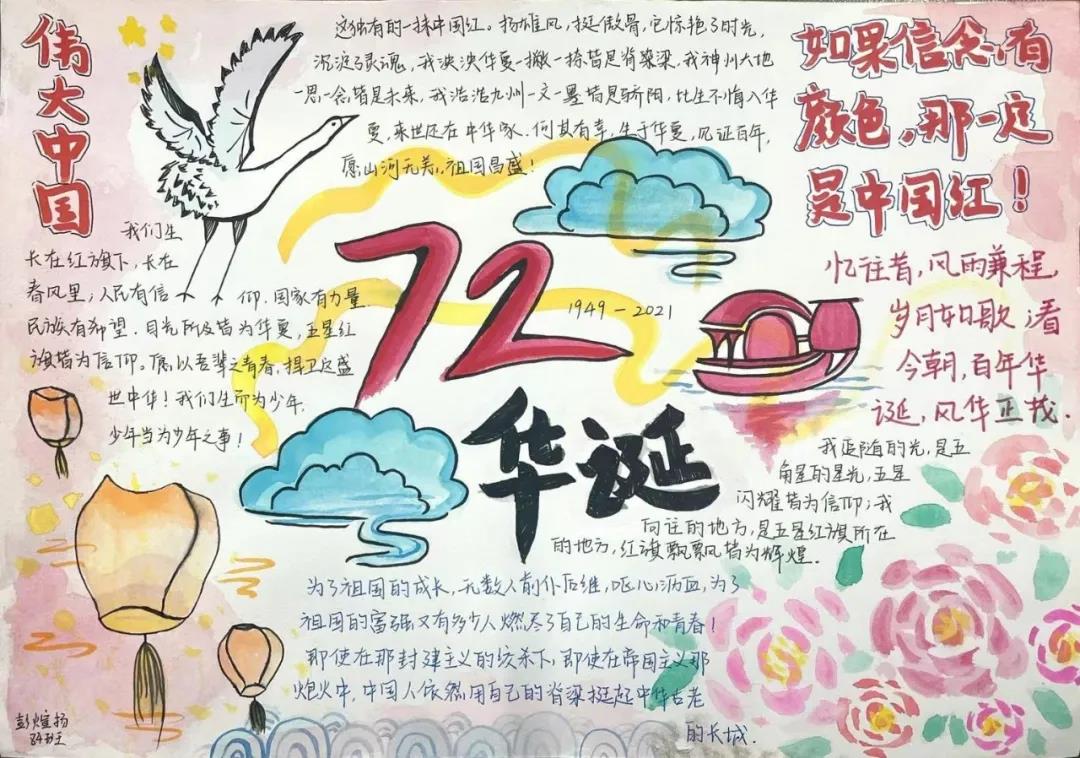 伟大中国
这独有的一抹中国红。扬雄风,挺傲骨,它惊艳了时光,
沉淀了灵魂,我泱泱华夏一撇一捺皆是脊梁,我神州大地
一思一念皆是未来,我浩浩九州一文一墨皆是骄阳,此生不悔入华
夏,来世还在中华家,何其有幸,生于华夏,见证百年,
愿山河无恙,祖国昌盛!
如果信念,有
颜色,那一定
是中国红!
我们生
长在红旗下,长在
春风里;人民有信仰,国家有力量
民族有希望,目光所及皆为华夏,五星红
旗皆为信仰。愿以吾辈之青春,捍卫
盛
世中华!我们生而为少年,
少年当为少年之事!
72
1949-2021
华诞
忆往昔,风雨兼程,
岁月如歌;看
今朝,百年华
诞,风华正茂.
我追随的光,是五
角星的星光,五星
闪耀皆为信仰;我
向往的地方,是五星红旗所在
的地方,红旗飘飘皆为辉煌.
为了祖国的成长,无数人前仆后继,呕心沥血,为了
祖国的富强又有多少人燃尽了自己的生命和青春!
即使在那封建主义的
下,即使在帝国主义那
炮火中,中国人依然用自己的脊梁挺起中华古老
的长城.
彭煊扬